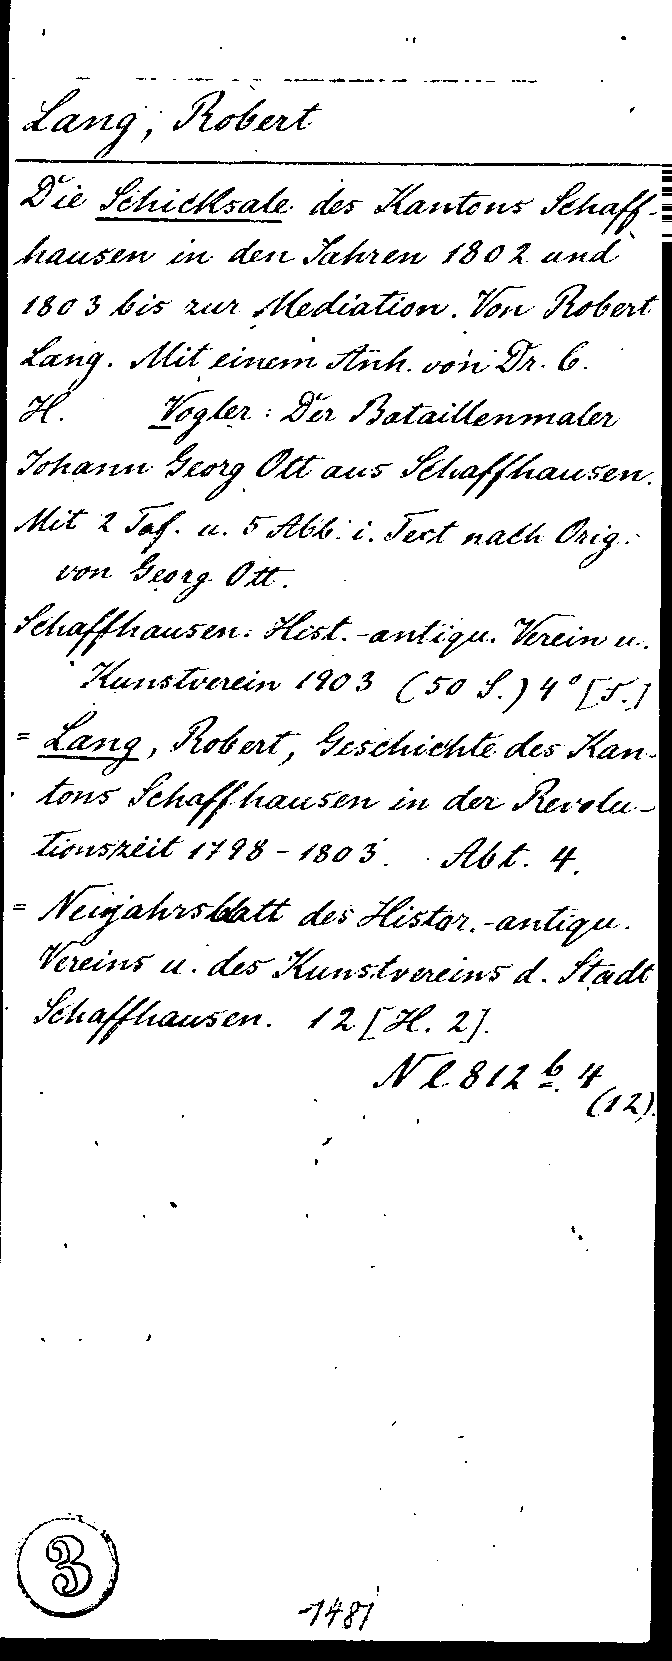 Lang, Robert
Die Schicksale des Kantons Schaff-
hausen in den Jahren 1802 und
1803 bis zur Mediation. Von Robert
Lang. Mit einem Anh. von Dr. C.
H. Vogler: Der Bataillenmaler
Johann Georg Ott aus Schaffhausen.
Mit 2 Taf. u. 5 Abb. i. Text nach Orig.
von Georg Ott.
Schaffhausen: Hist.-antiqu. Verein u.
Kunstverein 1903 (50 S.) 4° [S.]
= Lang, Robert, Geschichte des Kan-
tons Schaffhausen in der Revolu-
tionszeit 1798-1803. Abt. 4.
= Neujahrsblatt des Histor.-antiqu.
Vereins u. des Kunstvereins d. Stadt
Schaffhausen. 12 [H. 2].
Nl 812 b. 4
(12).
3
1481